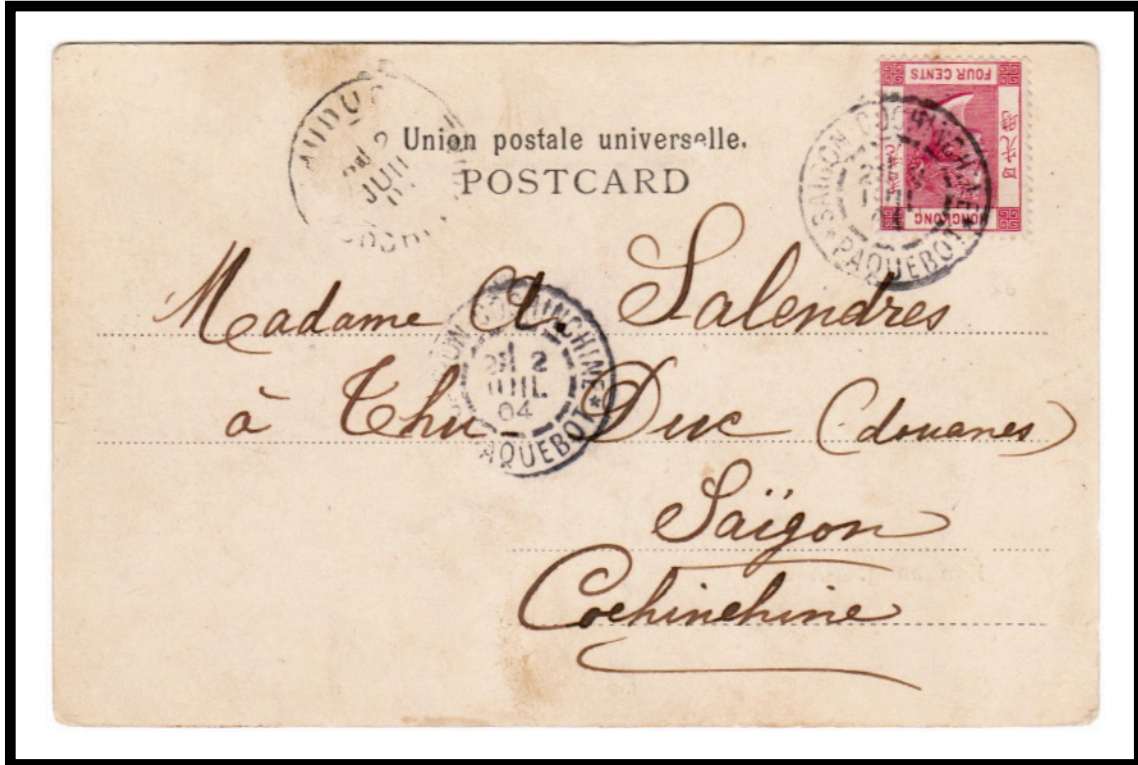 Union postale universelle.
POSTCARD
FOUR CENTS
HONGKONG
SAIGON COCHINCHINE
PAQUEBOT
Madame A. Salendres
COCHINCHINE
2
JUIL
04
PAQUEBOT
à Thu-Duc (douanes)
Saïgon
Cochinchine